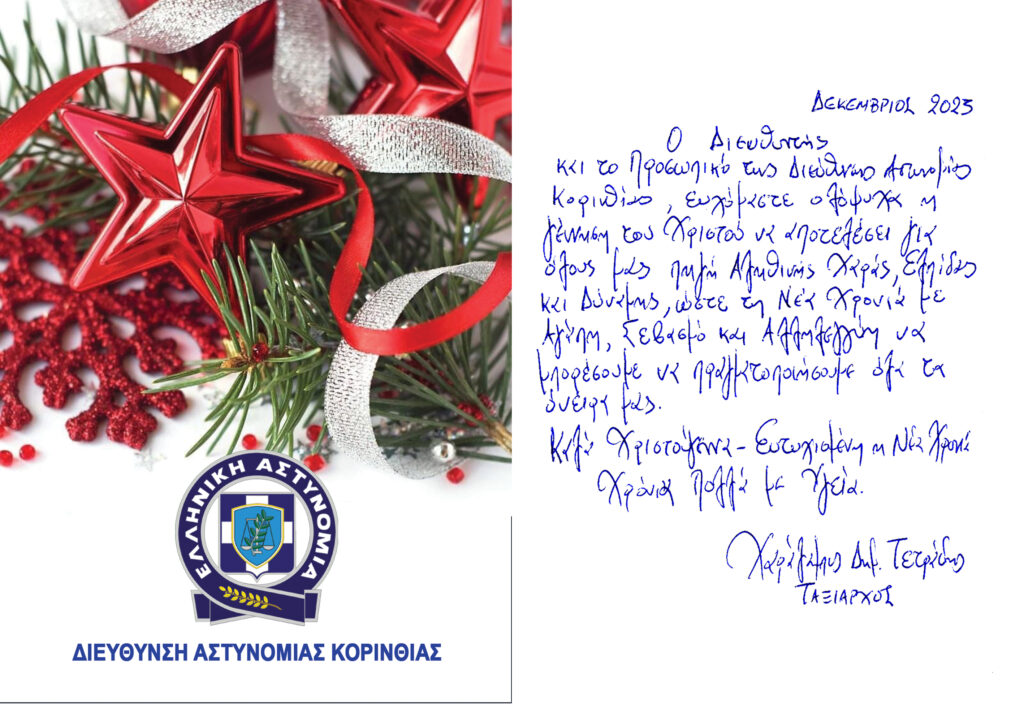 ΕΛΛΗΝΙΚΗ ΑΣΤΥΝΟΜΙΑ
ΔΙΕΥΘΥΝΣΗ ΑΣΤΥΝΟΜΙΑΣ ΚΟΡΙΝΘΙΑΣ
ΔΕΚΕΜΒΡΙΟΣ 2023
Ο Διευθυντής
και το Προσωπικό της Διεύθυνσης Αστυνομίας
Κορινθίας, ευχόμαστε ολόψυχα η
γέννηση του Χριστού να αποτελέσει για
όλους μας πηγή Αληθινής Χαράς, Ελπίδας
και Δύναμης, ώστε τη Νέα Χρονιά με
Αγάπη, Σεβασμό και Αλληλεγγύη να
μπορέσουμε να πραγματοποιήσουμε όλα τα
όνειρα μας.
Καλά Χριστούγεννα - Ευτυχισμένη η Νέα Χρονιά
Χρόνια Πολλά με Υγεία.
Χαράλαμπος Δημ.
ΤΑΞΙΑΡΧΟΣ